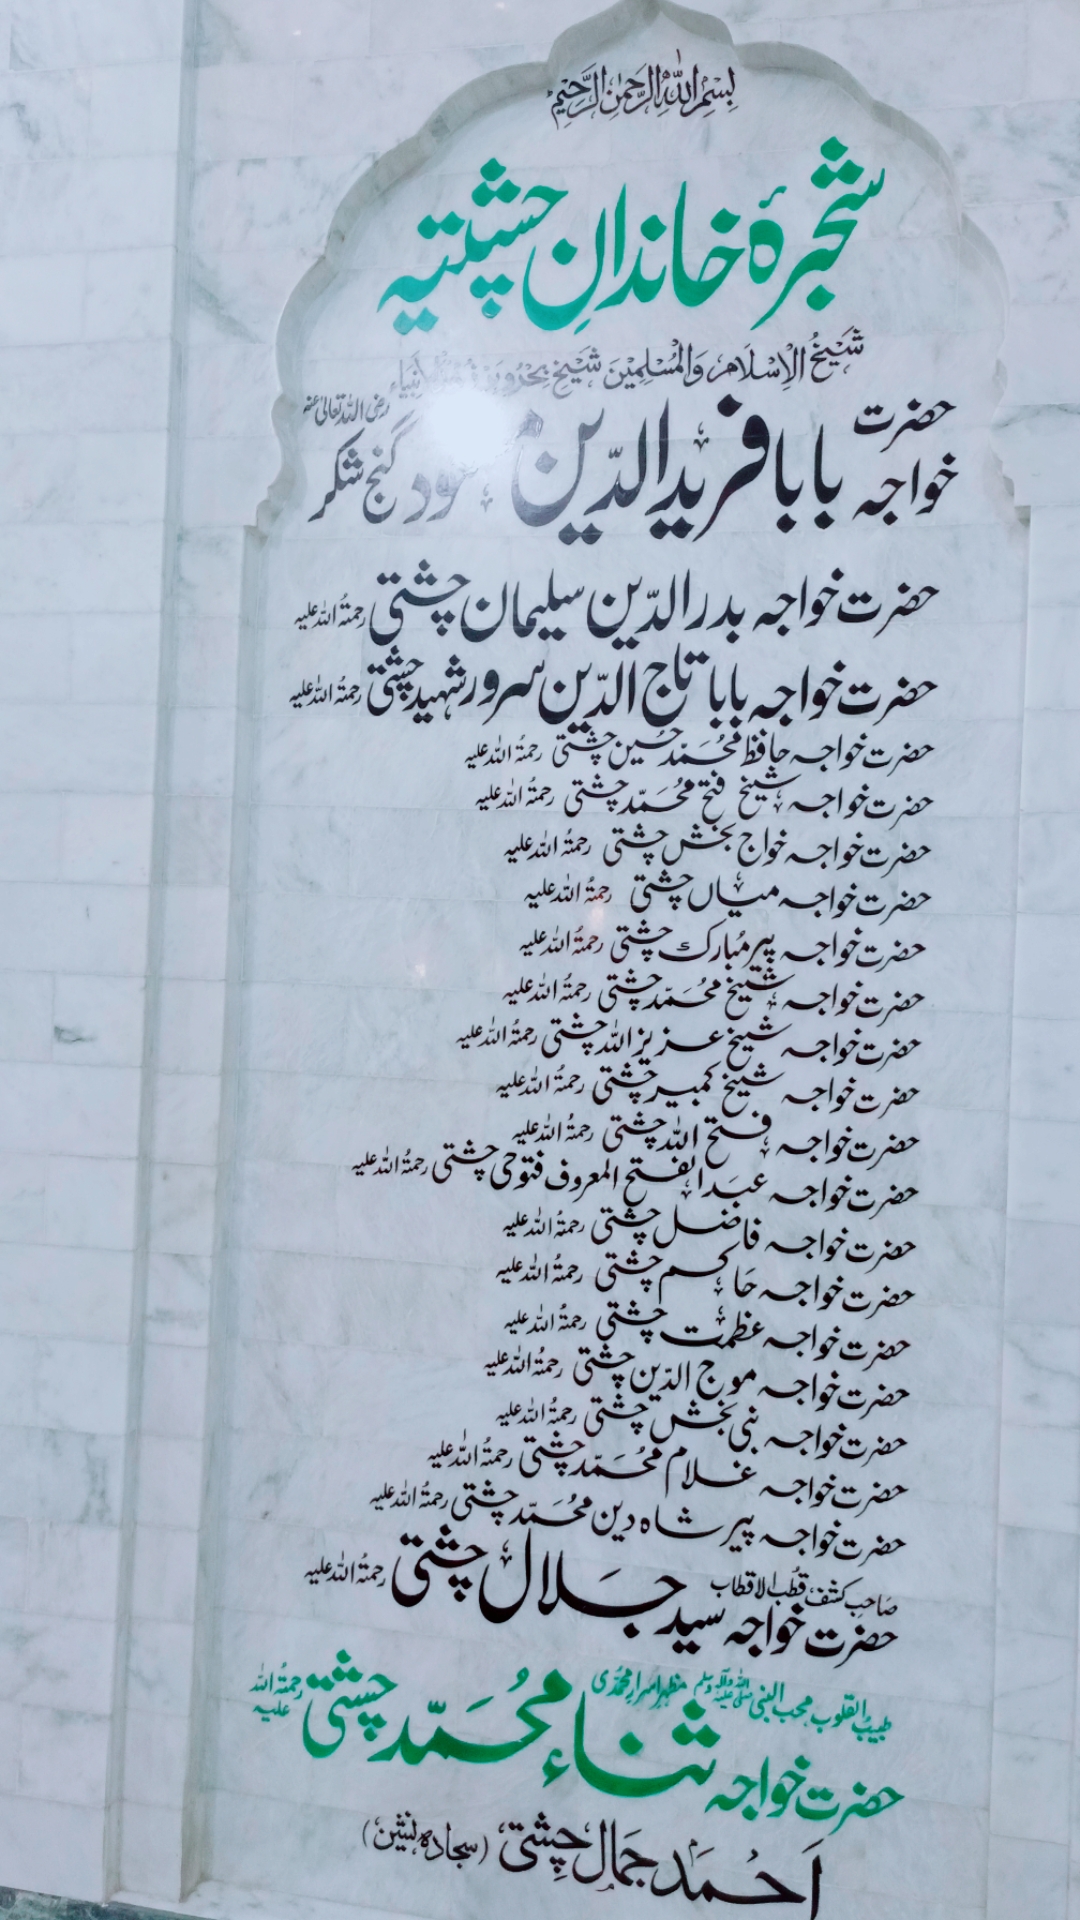 بِسْمِ اللهِ الرَّحْمٰنِ الرَّحِيْمِ
شجرۂ خاندانِ چشتیہ
شَیخُ الْاِسْلَام وَالْمُسْلِمِیْنَ شَیْخِ بحروبر
حضرت خواجہ بابا فریدالدّین گنج شکر رضی اللہ تعالیٰ عنہ
حضرت خواجہ بدرالدّین سلیمان چشتی رحمۃُ اللہ علیہ
حضرت خواجہ بابا تاج الدّین سرور شہید چشتی رحمۃُ اللہ علیہ
حضرت خواجہ حافظ محمّد حسین چشتی رحمۃُ اللہ علیہ
حضرت خواجہ شیخ فتح محمّد چشتی رحمۃُ اللہ علیہ
حضرت خواجہ خواج بخش چشتی رحمۃُ اللہ علیہ
حضرت خواجہ میاں چشتی رحمۃُ اللہ علیہ
حضرت خواجہ پیر مُبارک چشتی رحمۃُ اللہ علیہ
حضرت خواجہ شیخ محمّد چشتی رحمۃُ اللہ علیہ
حضرت خواجہ شیخ عزیز اللہ چشتی رحمۃُ اللہ علیہ
حضرت خواجہ شیخ کمبیر چشتی رحمۃُ اللہ علیہ
حضرت خواجہ فتح اللہ چشتی رحمۃُ اللہ علیہ
حضرت خواجہ عبدالفتح المعروف فتوحی چشتی رحمۃُ اللہ علیہ
حضرت خواجہ فاضل چشتی رحمۃُ اللہ علیہ
حضرت خواجہ حاکم چشتی رحمۃُ اللہ علیہ
حضرت خواجہ عظمت چشتی رحمۃُ اللہ علیہ
حضرت خواجہ موج الدّین چشتی رحمۃُ اللہ علیہ
حضرت خواجہ نبی بخش چشتی رحمۃُ اللہ علیہ
حضرت خواجہ غلام محمّد چشتی رحمۃُ اللہ علیہ
حضرت خواجہ پیر شاہ دین محمّد چشتی رحمۃُ اللہ علیہ
صاحبِ کشف، قطب الاقطاب
حضرت خواجہ سید جلال چشتی رحمۃُ اللہ علیہ
طبیبُ القلوب، محبُ النبی صلی اللہ علیہ وآلہ وسلم مظہرِ اسرارِ محمّدی
حضرت خواجہ ثناء محمّد چشتی رحمۃُ اللہ علیہ
اَحمد جمال چشتی (سجادہ نشین)